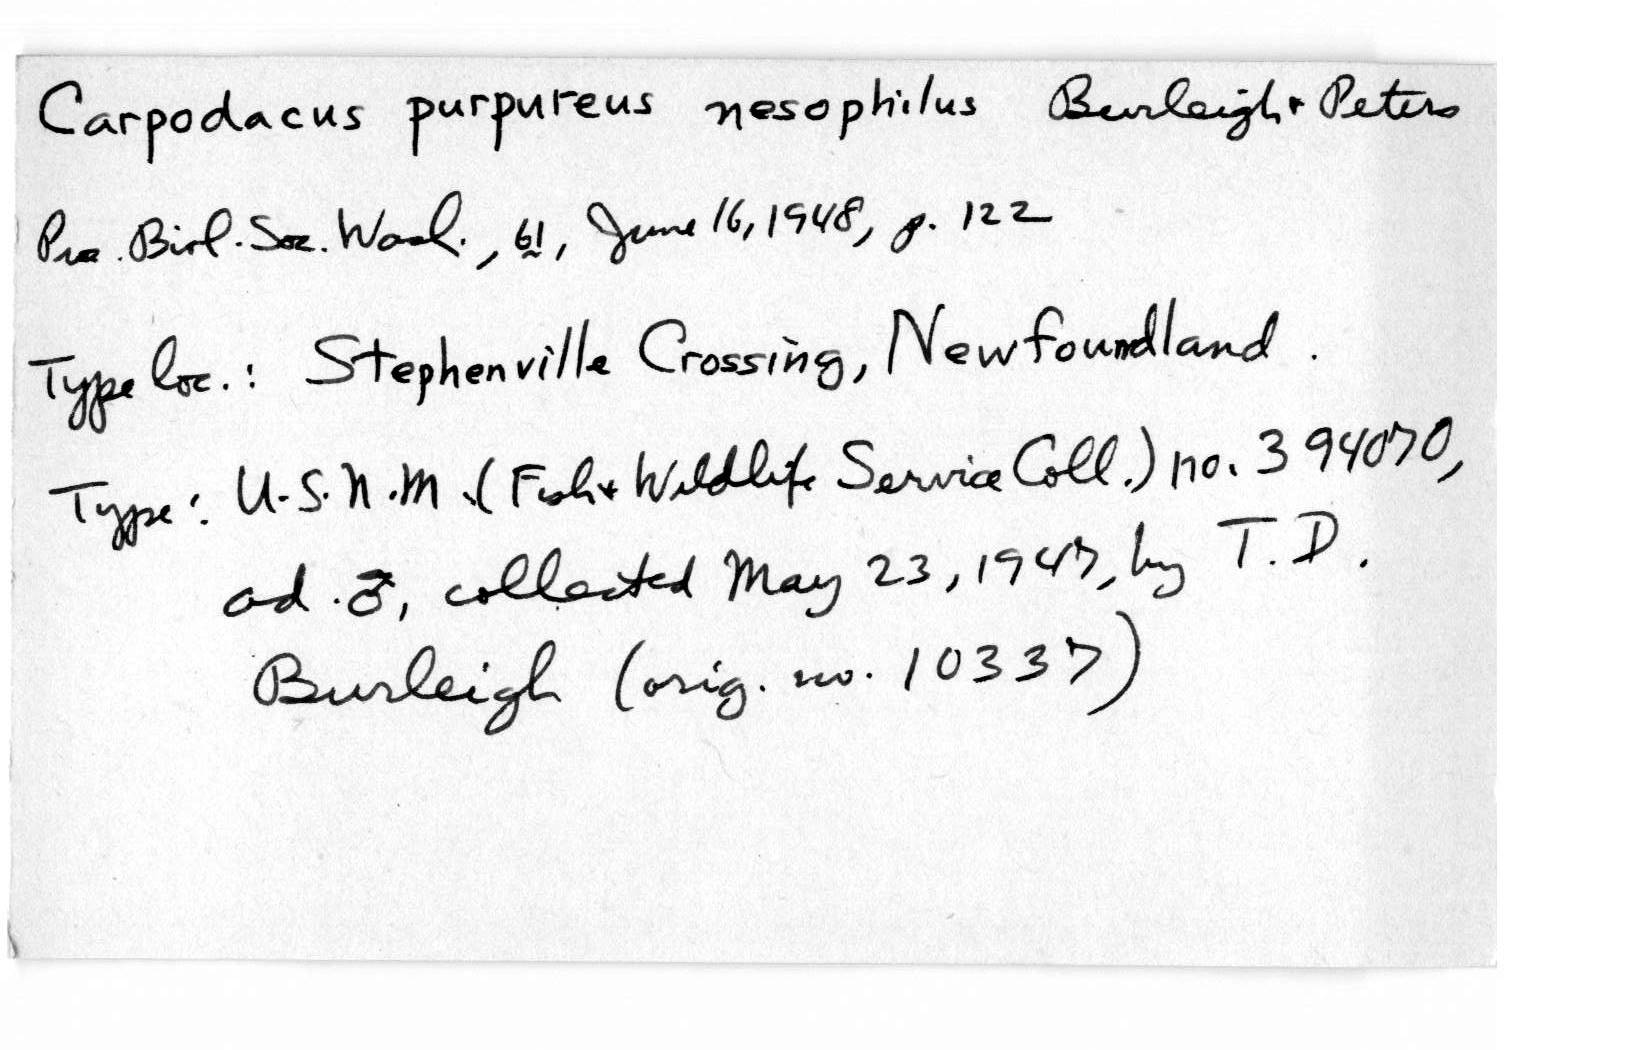 Carpodacus purpureus nesophilus Burleigh & Peters
Proc. Biol. Soc. Wash., 61, June 16, 1948, p. 122
Type loc.: Stephenville Crossing, Newfoundland.
Type: U.S.N.M. (Fish & Wildlife Service Coll.) no. 394070,
ad. ♂, collected May 23, 1947, by T. D.
Burleigh (orig. no. 10337)